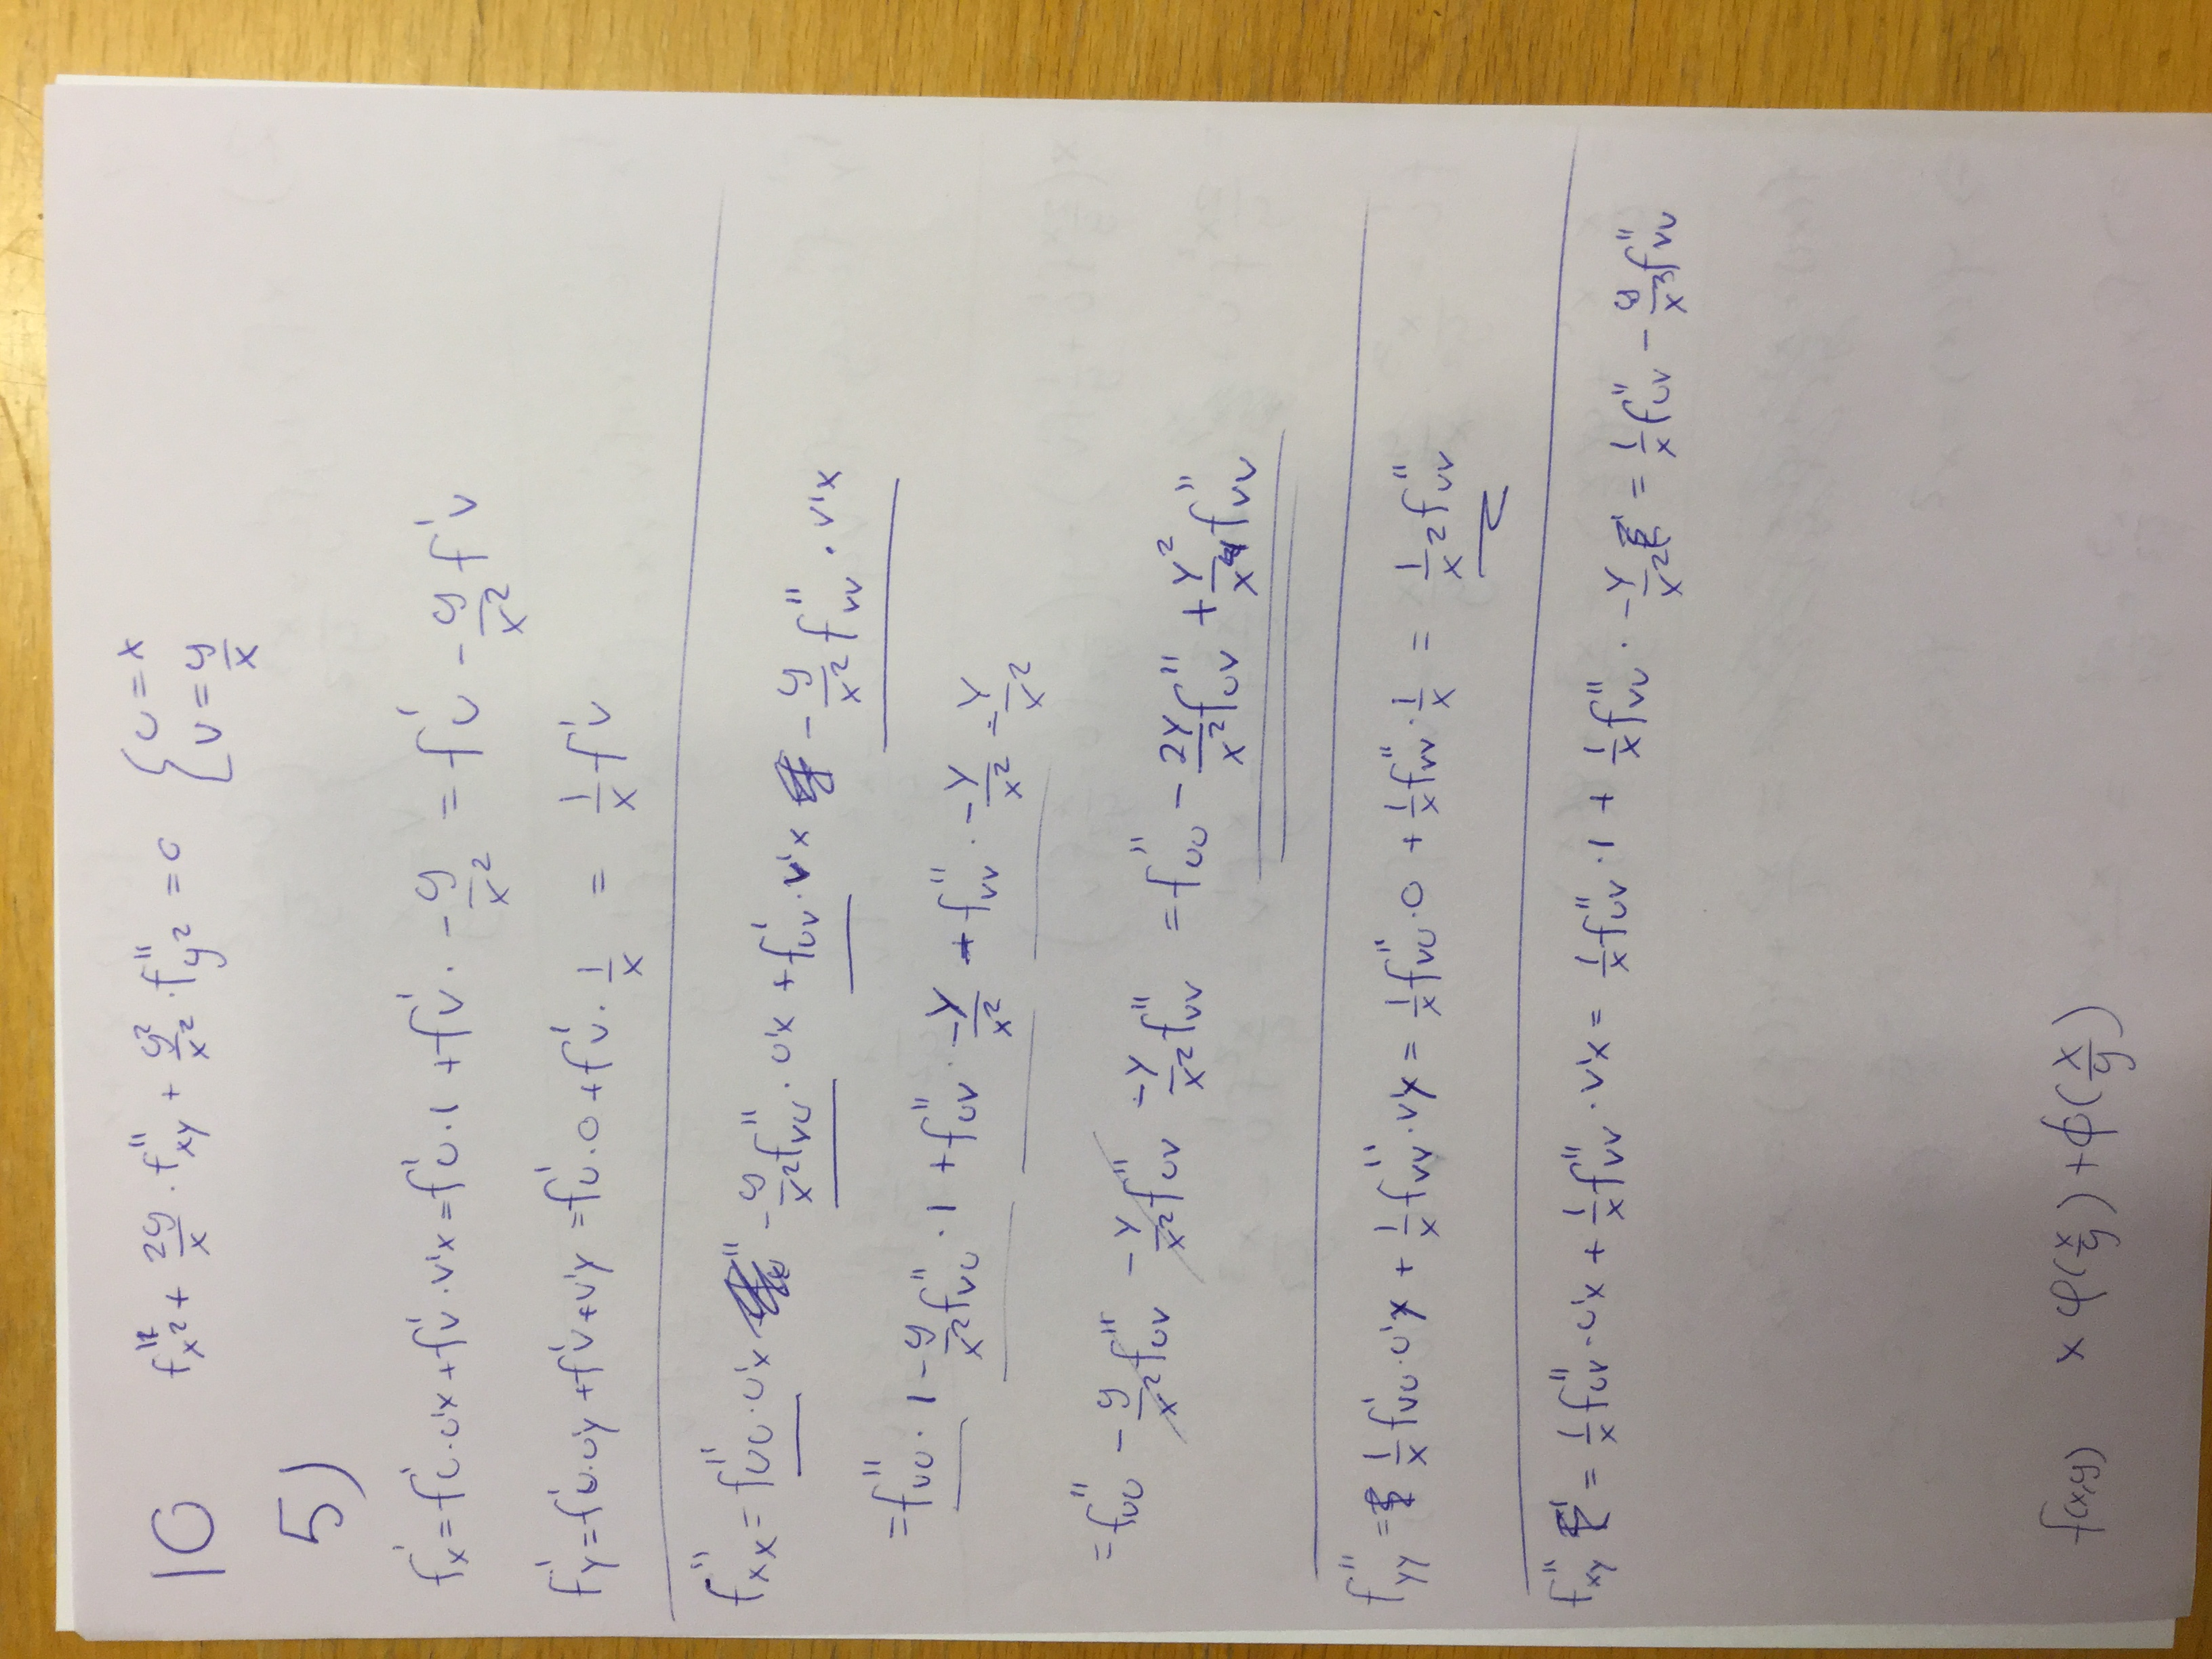 10 f''x² + 2y/x · f''xy + y²/x² · f''y² = 0 { u = x
v = y/x
5)
f'x = f'u · u'x + f'v · v'x = f'u · 1 + f'v · -y/x² = f'u - y/x² f'v
f'y = f'u · u'y + f'v + v'y = f'u · 0 + f'v · 1/x = 1/x f'v
f''xx = f''uu · u'x - y/x² f''vu · u'x + f'uv · v'x - y/x² f''vv · v'x
= f''uu · 1 - y/x² f''vu · 1 + f''uv · -y/x² + f''vv · -y/x² · -y/x²
= f''uu - y/x² f''uv - y/x² f''uv - y/x² f''vv = f''uu - 2y/x² f''uv + y²/x⁴ f''vv
f''yy = 1/x f'vu · u'y + 1/x f''vv · v'y = 1/x f''vu · 0 + 1/x f''vv · 1/x = 1/x² f''vv
f''xy = 1/x f''uv · u'x + 1/x f''vv · v'x = 1/x f''uv · 1 + 1/x f''vv · -y/x² = 1/x f''uv - y/x³ f''vv
f(x,y) x φ(x/y) + ϕ(x/y)